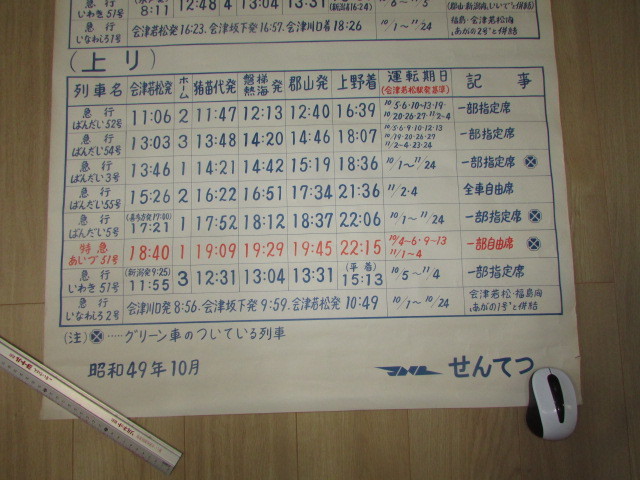 急行 8:11 12:48 4 13:04 13:31
いわき51号 (新潟16:24)
急行 会津若松発16:23.会津坂下発16:57.会津川口着18:26 10/1〜11/24 福島-会津若松間
いなわしろ1号 「あがの2号」と併結
(上り)
列車名 会津若松発 ホーム 猪苗代発 磐梯熱海発 郡山発 上野着 運転期日 記事
(会津若松駅発基準)
急行 11:06 2 11:47 12:13 12:40 16:39 10/5・6・10・13・19・ 一部指定席
ばんだい52号 10/20・26・27・11/2〜4
急行 13:03 3 13:48 14:20 14:46 18:07 10/5・6・9・10・12・13 一部指定席
ばんだい54号 10/19・20・26・27
11/2〜4・23・24
急行 13:46 1 14:21 14:42 15:19 18:36 10/1〜11/24 一部指定席
ばんだい3号
急行 15:26 2 16:22 16:51 17:34 21:36 11/2・4 全車自由席
ばんだい55号
急行 (喜多方発17:00) 1 17:52 18:12 18:37 22:06 10/1〜11/24 一部指定席
ばんだい5号 17:21
特急 18:40 1 19:09 19:29 19:45 22:15 10/4〜6・9〜13 一部自由席
あいづ51号 11/1〜4
急行 (新潟発9:25) 3 12:31 13:04 13:31 (平着) 10/5〜11/4 一部指定席
いわき51号 11:55 15:13
急行 会津川口発 8:56.会津坂下発 9:59.会津若松発 10:49 10/1〜10/24 会津若松-福島間
いなわしろ2号 「あがの1号」と併結
(注) ……グリーン車のついている列車
昭和49年10月 JNR せんてつ